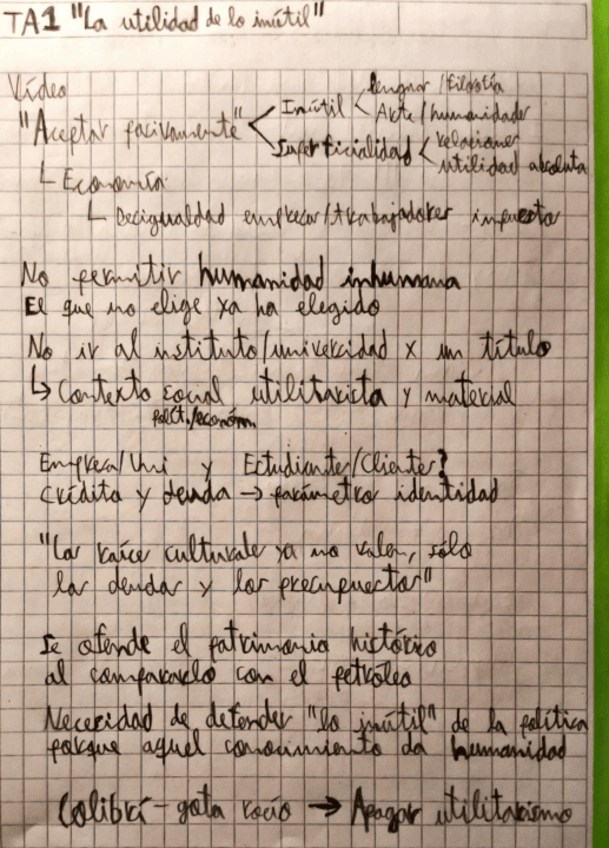 TA1 "La utilidad de lo inútil"
Vídeo
lenguas/filosofía
"Aceptar pasivamente" < Inútil < Arte/humanidades
Superficialidad < relaciones
utilidad absoluta
└ Economía:
└ Desigualdad empresas/trabajadores impuesta
No permitir humanidad inhumana
El que no elige ya ha elegido
No ir al instituto/universidad x un título
↳ Contexto social utilitarista y material
polít./económ.
Empresa/Uni y Estudiantes/Clientes?
Crédito y deuda → parámetros identidad
"Las raíces culturales ya no valen, sólo
las deudas y los presupuestos"
Se ofende el patrimonio histórico
al compararlo con el petróleo
Necesidad de defender "lo inútil" de la política
porque aquel conocimiento da humanidad
Colibrí - gota rocío → Apagar utilitarismo